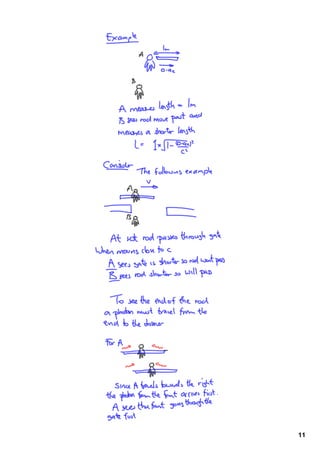 Example
1m
A
0.9c
B
A measures length = 1m
B sees rod move past and
measures a shorter length
L = 1×√1-(0.9c)²
c²
Consider
The following example
V
A
B
At rest rod passes through gate
When moving close to c
A sees gate is shorter so rod wont pass
B sees rod shorter so will pass
To see the end of the rod
a photon must travel from the
end to the observer
For A
Since A travels towards the right
the photon from the front arrives first.
A sees the front goes through the
gate first
11